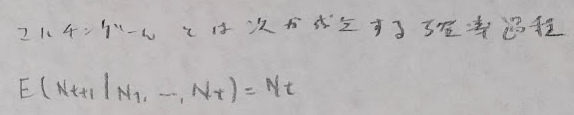 マルチンゲールとは次が成立する確率過程
E(Nt+1|N1, …, Nt) = Nt